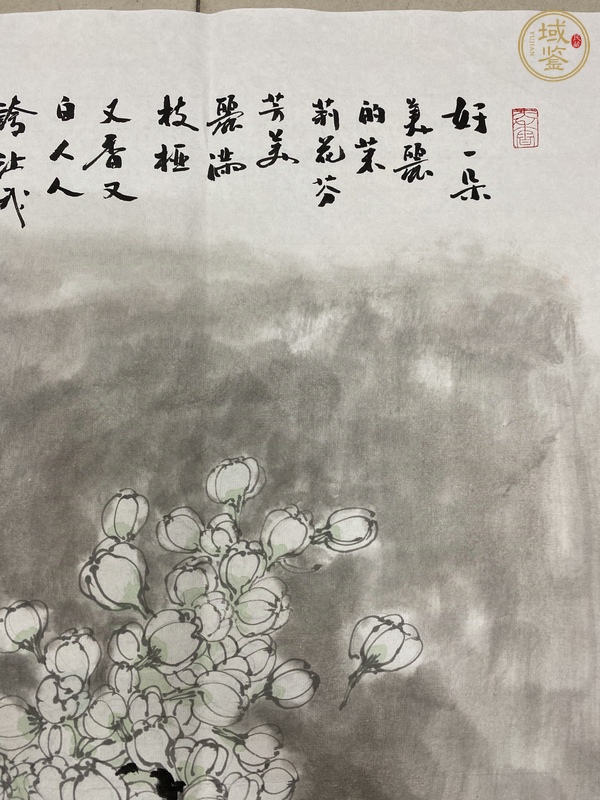 好一朵
美麗
的茉
莉花芬
芳美
麗滿
枝椏
又香又
白人人
誇让我
域鉴
YUJIAN